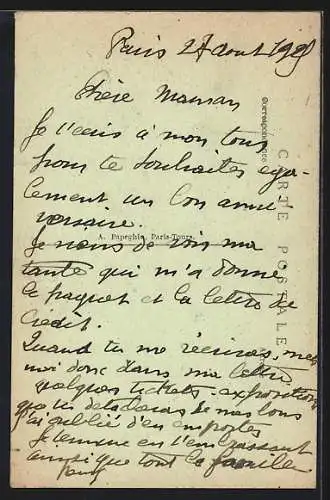 Paris 27 aout 19
Chère Maman
Je t'ecris à mon tour
pour te souhaiter ega-
lement un bon anni
versaire.
A. Papeghin, Paris-Tours.
Je viens de voir ma
tante qui m'a donné
le paquet et la lettre de
Credit.
Quand tu me recriras, mets
moi donc dans ma lettre
quelques tickets exposition
que tu detacheras de mes bons
j'ai oublié d'en emporter
Je termine en t'embrassant
ainsi que toute la famille
CARTE POSTALE
Correspondance